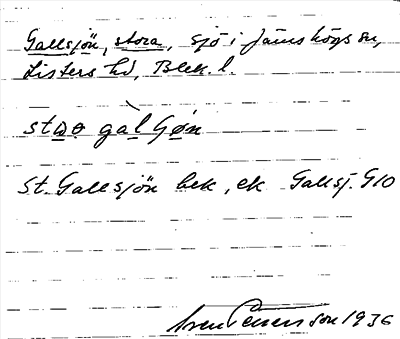 Gallsjön, stora, sjö i Jämshögs sn,
Listers hd, Blek. l.
St. Gallsjön bek, ek Gallsj. G10
Sven Benson 1936